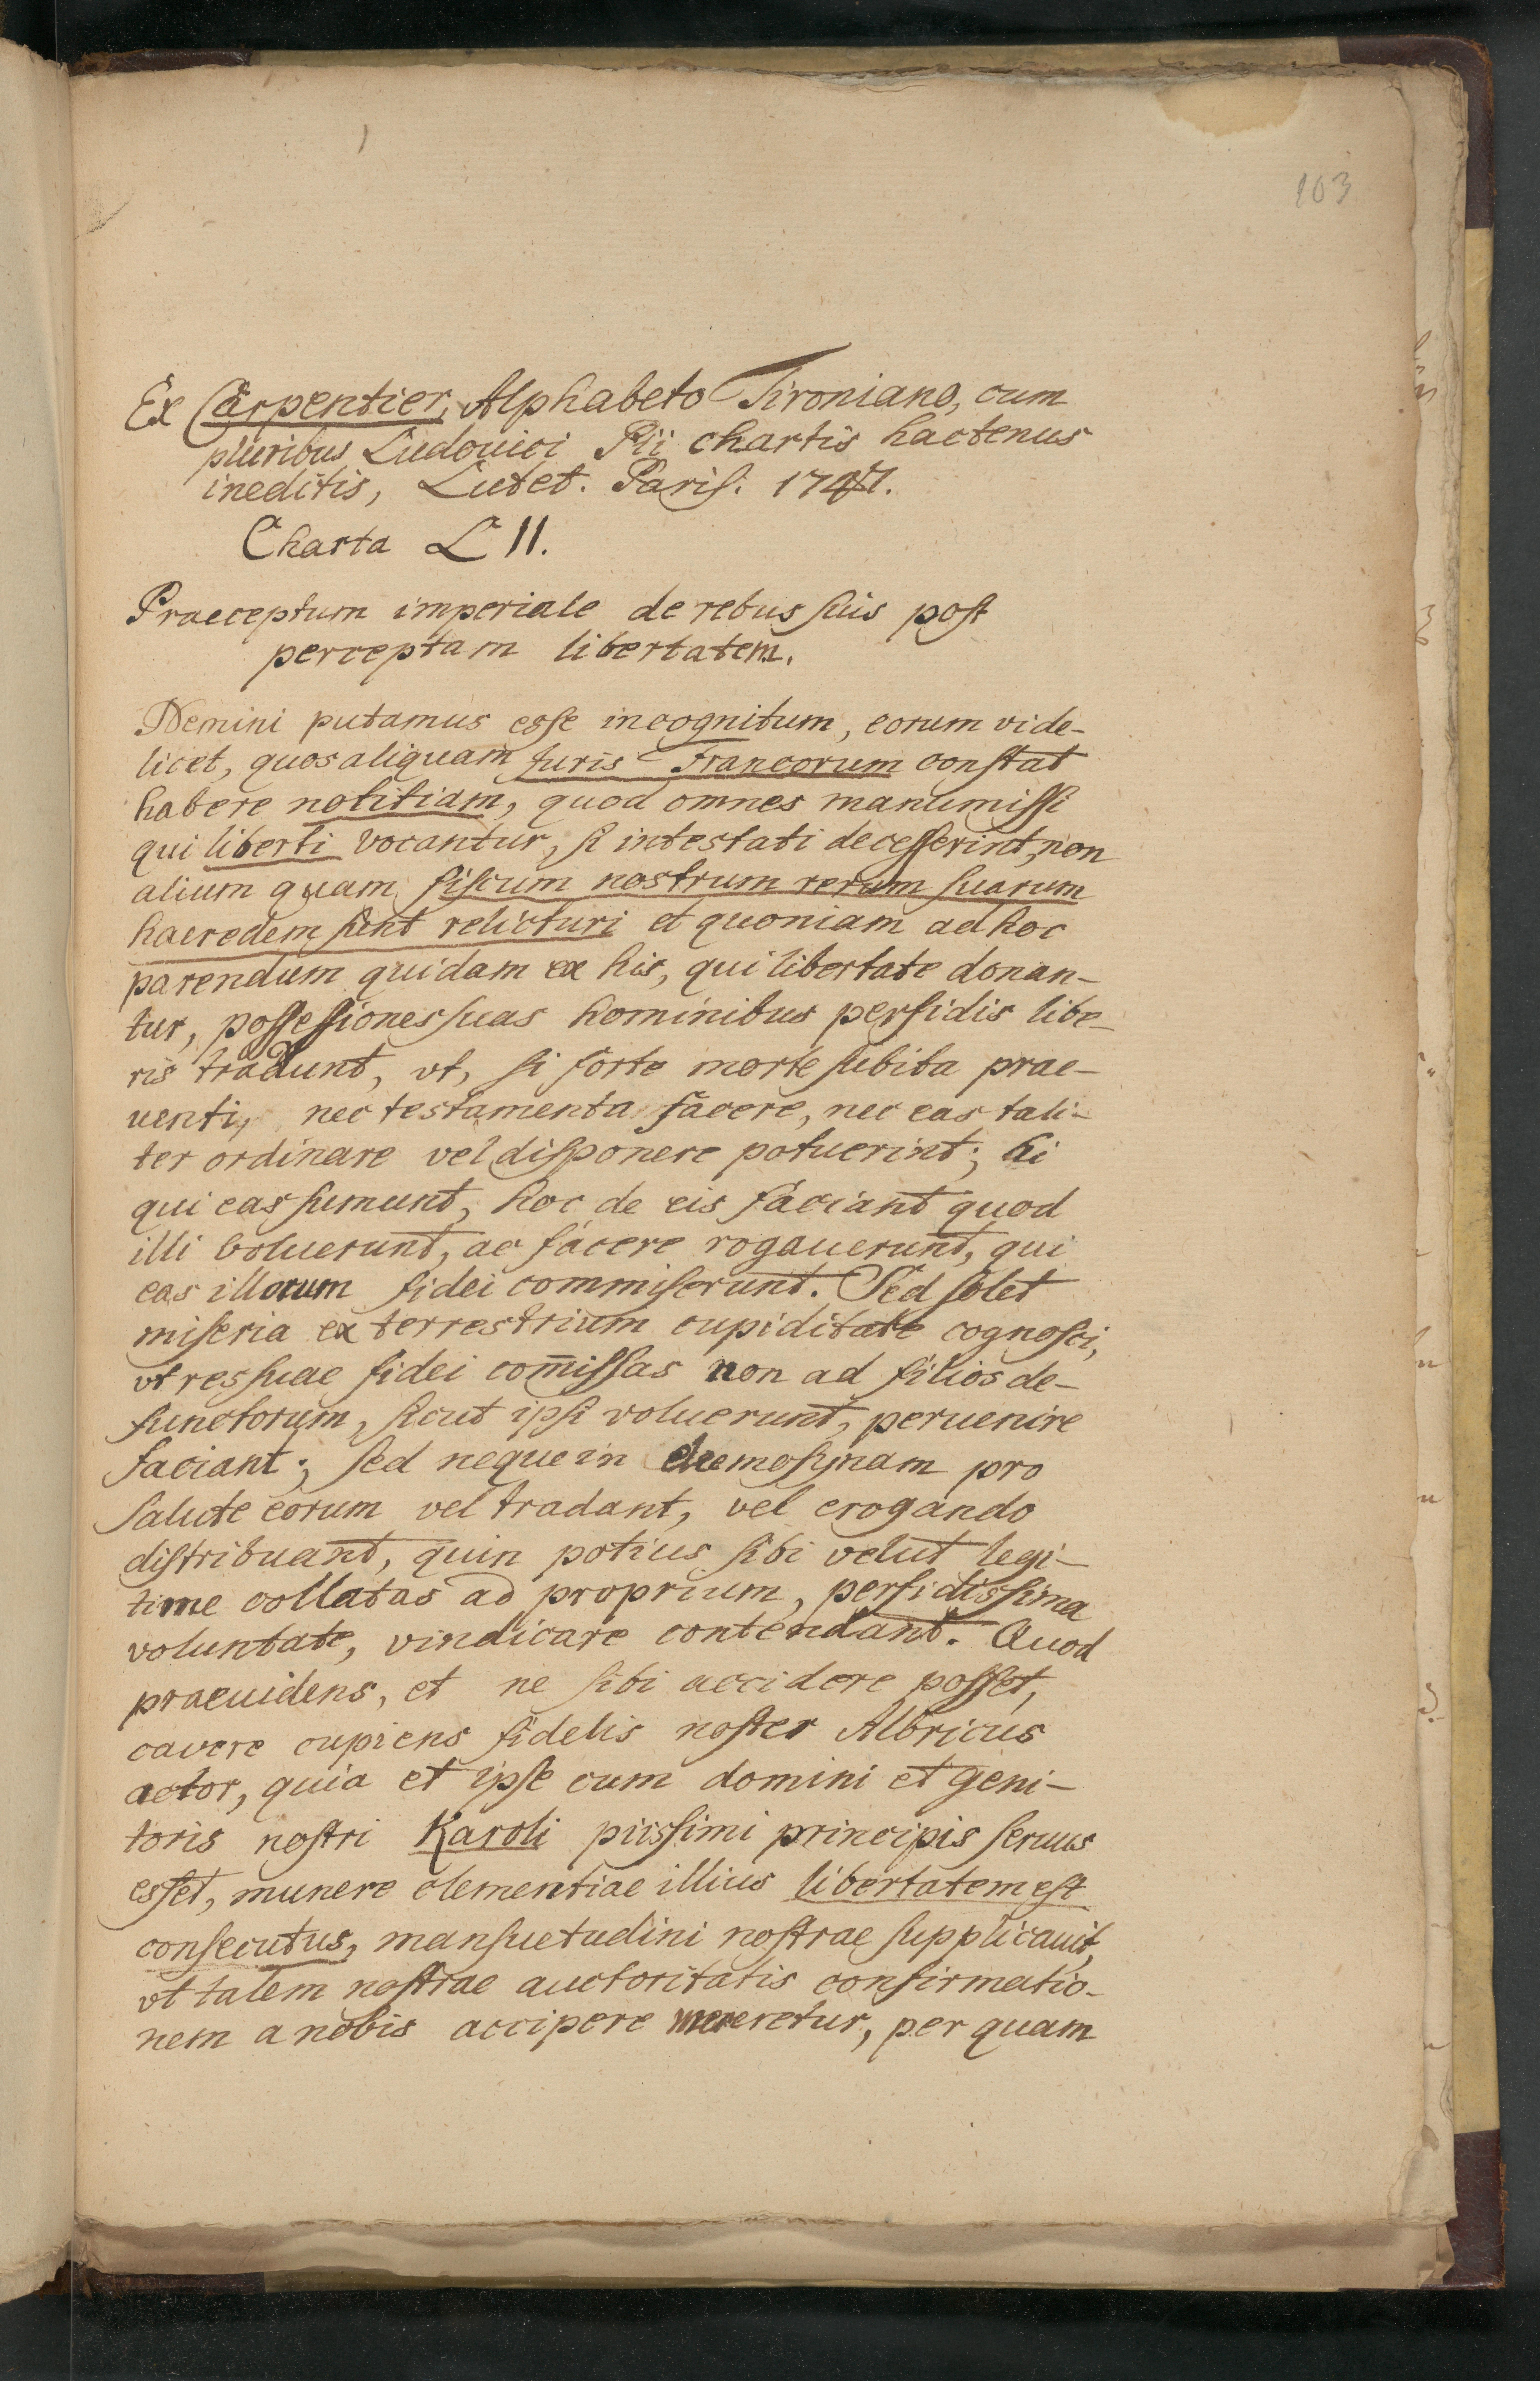 103
Ex Carpentier, Alphabeto Tironiano, cum
pluribus Ludouici Pii chartis hactenus
ineditis, Lutet. Pariſ. 1747.
Charta L II.
Praeceptum imperiale de rebus ſuis poſt
perceptam libertatem.
Nemini putamus eſſe incognitum, eorum vide-
licet, quos aliquam Juris Francorum conſtat
habere notitiam, quod omnes manumiſſi
qui liberti vocantur, ſi intestati deceſſerint, non
alium quam fiſcum nostrum rerum ſuarum
haeredem ſint relicturi et quoniam ad hoc
parendum quidam ex his, qui libertate donan-
tur, poſſeſſiones ſuas hominibus perfidis libe-
ris tradunt, vt, ſi forte morte ſubita prae-
uenti, nec testamenta facere, nec eas tali-
ter ordinare vel diſponere potuerint; hi
qui eas ſumunt, hoc de eis faciant quod
illi voluerunt, ac facere rogauerunt, qui
eas illorum fidei commiſerunt. Sed ſolet
miſeria ex terrestrium cupiditate cognoſci,
vt res ſuae fidei com̄iſſas non ad filios de-
functorum, ſicut ipſi voluerunt, peruenire
faciant; ſed neque in elemoſynam pro
ſalute eorum vel tradant, vel erogando
diſtribuant, quin potius ſibi velut legi-
time collatas ad proprium, perfidisſima
voluntate, vindicare contendant. Quod
praeuidens, et ne ſibi accidere poſſet,
cavere cupiens fidelis noſter Albricus
actor, quia et ipſe cum domini et geni-
toris noſtri Karoli piisſimi principis ſeruus
esſet, munere clementiae illius libertatem eſt
conſecutus, manſuetudini noſtrae ſupplicauit,
vt talem noſtrae auctoritatis confirmatio-
nem a nobis accipere mereretur, per quam